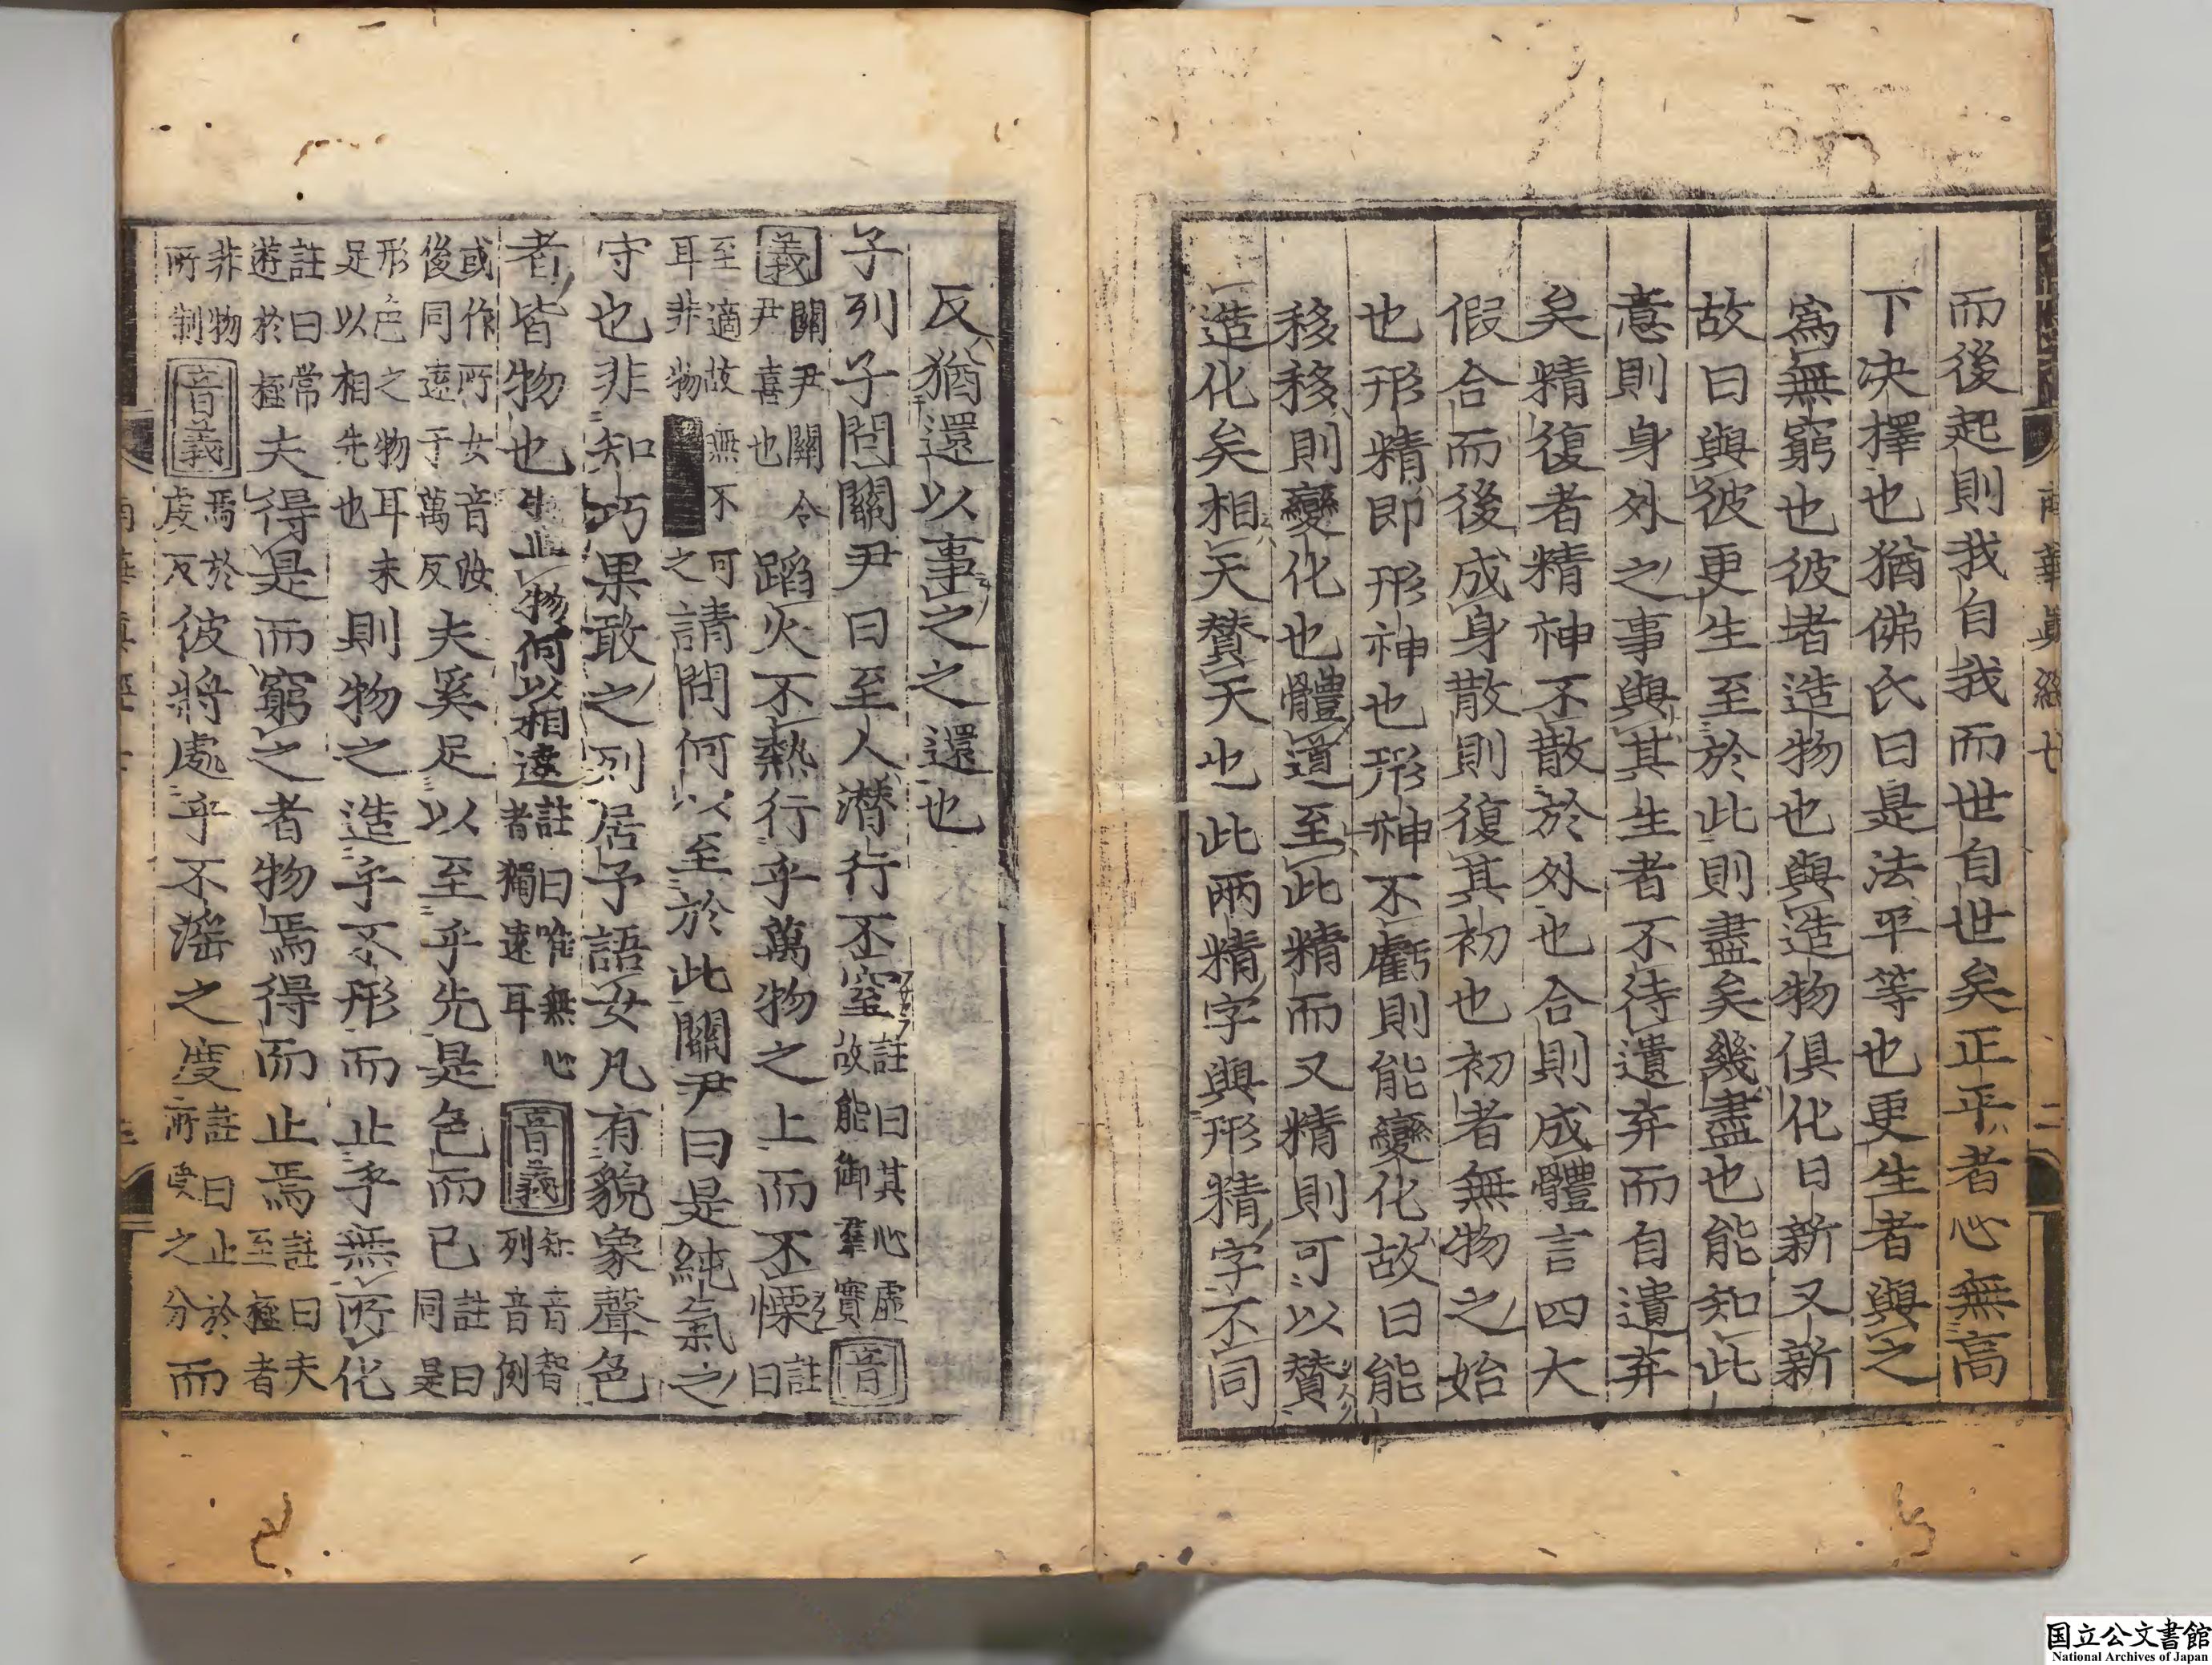 而後起則我自我而世自世矣正平者心無高
下决擇也猶佛氏曰是法平等也更生者與之
爲無窮也彼者造物也與造物俱化日新又新
故曰與彼更生至於此則盡矣幾盡也能知此
意則身外之事與其生者不待遺弃而自遺弃
矣精復者精神不散於外也合則成體言四大
假合而後成身散則復其初也初者無物之始
也形精即形神也形神不虧則能變化故曰能
移移則變化也體道至此精而又精則可以贊
造化矣相天贊天也此兩精字與形精字不同
反猶還以事之之還也
子列子問關尹曰至人潛行不窒註曰其心虛故能御羣實音
義關尹關令尹喜也蹈火不熱行乎萬物之上而不慄註曰
至適故無不可耳非物之請問何以至於此關尹曰是純氣之
守也非知巧果敢之列居予語女凡有貌象聲色
者皆物也物何以相遠註曰唯無心者獨遠耳音義知音智列音例
或作所女音汝後同遠于萬反夫奚足以至乎先是色而已註曰同是
形色之物耳未足以相先也則物之造乎不形而止乎無所化
註曰常遊於極夫得是而窮之者物焉得而止焉註曰夫至極者
非物所制音義焉於虔反彼將處乎不淫之度註曰止於所受之分而
国立公文書館
National Archives of Japan